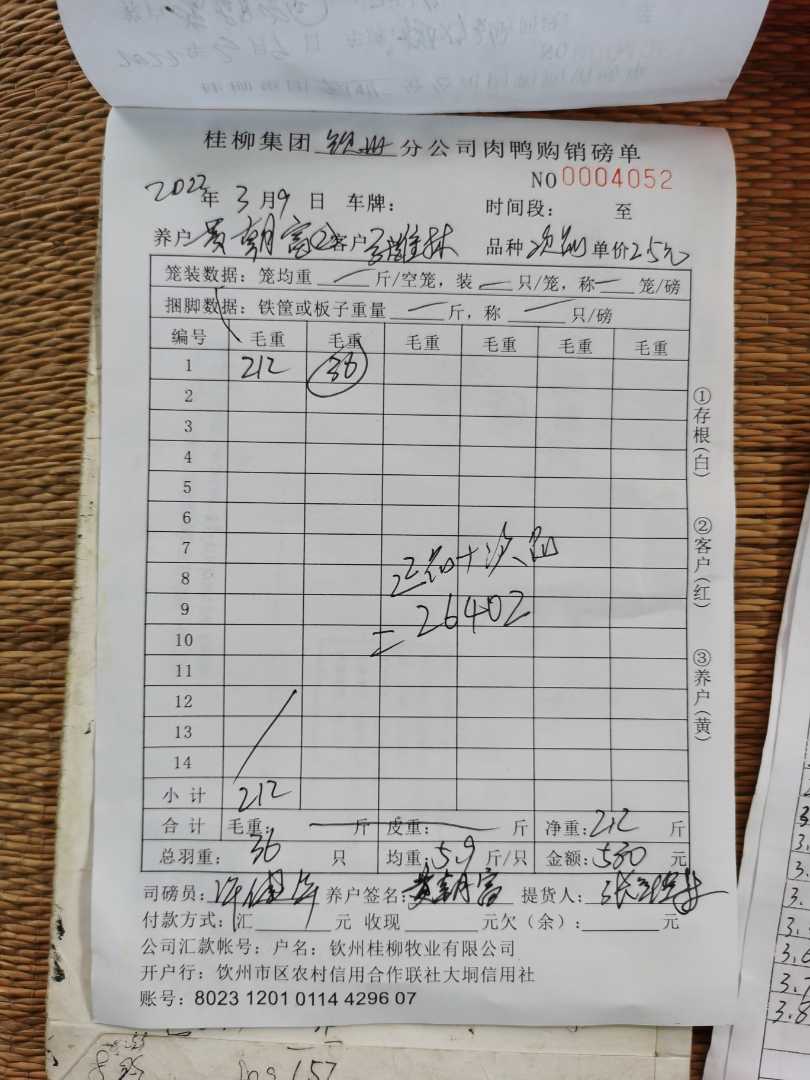 桂柳集团 钦州 分公司肉鸭购销磅单
NO 0004052
2023年 3月9日 车牌: 时间段: 至
养户 黄朝富② 客户 品种 次品 单价 2.5元
笼装数据: 笼均重 斤/空笼, 装 只/笼, 称 笼/磅
捆脚数据: 铁筐或板子重量 斤, 称 只/磅
编号 毛重 毛重 毛重 毛重 毛重 毛重
1 212 36
2
3
4
5
6
7
正品+次品
8
9
=26402
10
11
12
13
14
小计 212
合计 毛重: 斤 皮重: 斤 净重: 212 斤
总羽重: 36 只 均重: 5.9 斤/只 金额: 530 元
司磅员: 养户签名: 黄朝富 提货人:
付款方式: 汇 元 收现 元欠(余): 元
公司汇款帐号: 户名: 钦州桂柳牧业有限公司
开户行: 钦州市区农村信用合作联社大垌信用社
账号: 8023 1201 0114 4296 07
①存根(白)
②客户(红)
③养户(黄)
3.6
3.7
3.8